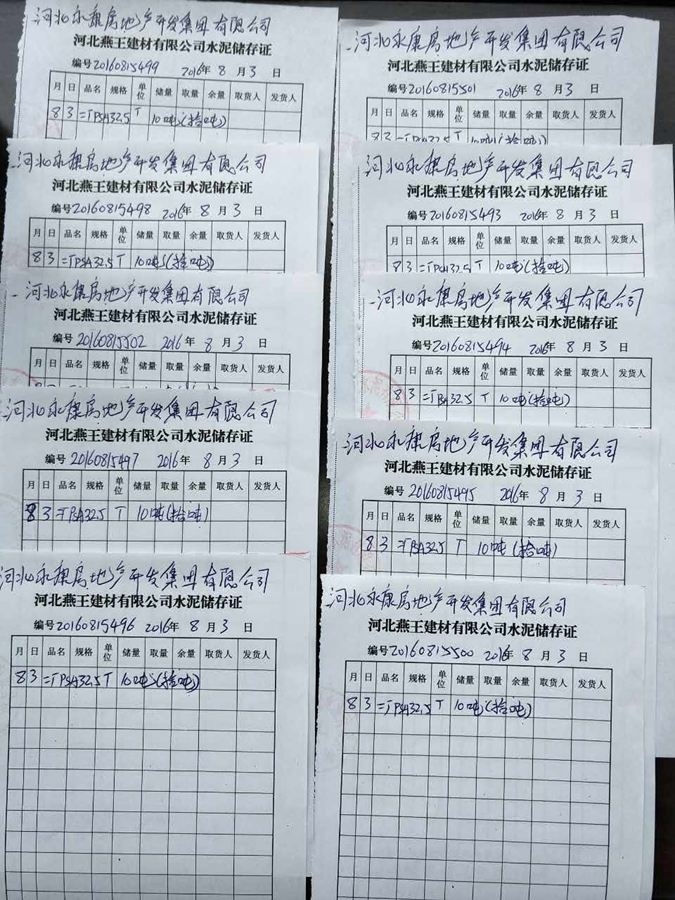 河北永康房地产开发集团有限公司
河北燕王建材有限公司水泥储存证
编号20160815499 2016年 8 月 3 日
月 日 品名 规格 单位 储量 取量 余量 取货人 发货人
8 3 PSA32.5 T 10吨(拾吨)
河北永康房地产开发集团有限公司
河北燕王建材有限公司水泥储存证
编号20160815498 2016年 8 月 3 日
月 日 品名 规格 单位 储量 取量 余量 取货人 发货人
8 3 PSA32.5 T 10吨(拾吨)
河北永康房地产开发集团有限公司
河北燕王建材有限公司水泥储存证
编号20160815502 2016年 8 月 3 日
月 日 品名 规格 单位 储量 取量 余量 取货人 发货人
河北永康房地产开发集团有限公司
河北燕王建材有限公司水泥储存证
编号20160815497 2016年 8 月 3 日
月 日 品名 规格 单位 储量 取量 余量 取货人 发货人
8 3 PSA32.5 T 10吨(拾吨)
河北永康房地产开发集团有限公司
河北燕王建材有限公司水泥储存证
编号20160815496 2016年 8 月 3 日
月 日 品名 规格 单位 储量 取量 余量 取货人 发货人
8 3 PSA32.5 T 10吨(拾吨)
河北永康房地产开发集团有限公司
河北燕王建材有限公司水泥储存证
编号20160815501 2016年 8 月 3 日
月 日 品名 规格 单位 储量 取量 余量 取货人 发货人
河北永康房地产开发集团有限公司
河北燕王建材有限公司水泥储存证
编号20160815493 2016年 8 月 3 日
月 日 品名 规格 单位 储量 取量 余量 取货人 发货人
8 3 PSA32.5 T 10吨(拾吨)
河北永康房地产开发集团有限公司
河北燕王建材有限公司水泥储存证
编号20160815494 2016年 8 月 3 日
月 日 品名 规格 单位 储量 取量 余量 取货人 发货人
8 3 PSA32.5 T 10吨(拾吨)
河北永康房地产开发集团有限公司
河北燕王建材有限公司水泥储存证
编号20160815495 2016年 8 月 3 日
月 日 品名 规格 单位 储量 取量 余量 取货人 发货人
8 3 PSA32.5 T 10吨(拾吨)
河北永康房地产开发集团有限公司
河北燕王建材有限公司水泥储存证
编号20160815500 2016年 8 月 3 日
月 日 品名 规格 单位 储量 取量 余量 取货人 发货人
8 3 PSA32.5 T 10吨(拾吨)